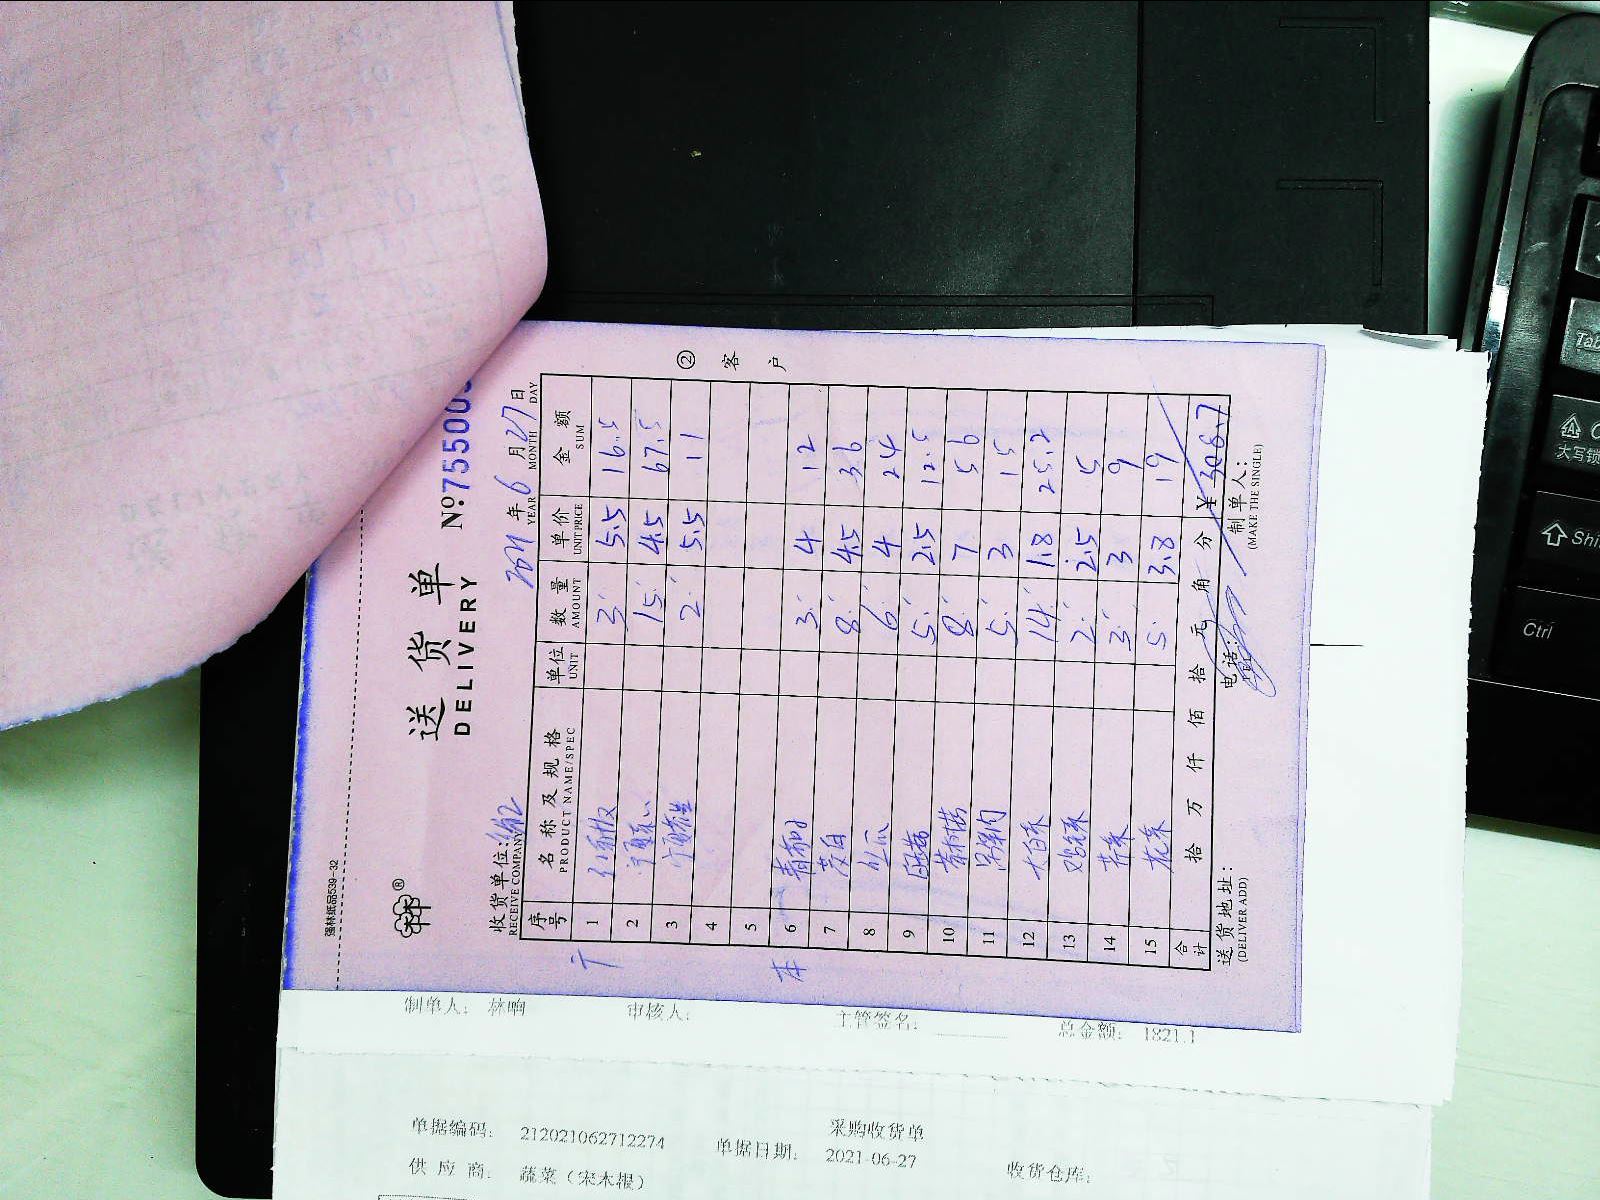 强林纸品539-32
送货单
DELIVERY
№755000
收货单位:
RECEIVE COMPANY
2021年6月27日
YEAR MONTH DAY
② 客户
序号 名称及规格 单位 数量 单价 金额
PRODUCT NAME/SPEC UNIT AMOUNT UNIT PRICE SUM
1 3 5.5 16.5
2 15 4.5 67.5
3 2 5.5 11
4
5
6 3 4 12
7 茭白 8 4.5 36
8 丝瓜 6 4 24
9 5 2.5 12.5
10 8 7 56
11 5 3 15
12 大白菜 14 1.8 25.2
13 2 2.5 5
14 芹菜 3 3 9
15 花菜 5 3.8 19
合计 拾 万 仟 佰 拾 元 角 分 ¥308.7
送货地址: 电话: 制单人:
(DELIVER ADD) (MAKE THE SINGLE)
制单人: 林响 审核人: 主管签名: 总金额: 1821.1
采购收货单
单据编码: 212021062712274 单据日期: 2021-06-27 收货仓库:
供应商: 蔬菜(宋木根)
Tab
大写锁
Shi
Ctrl